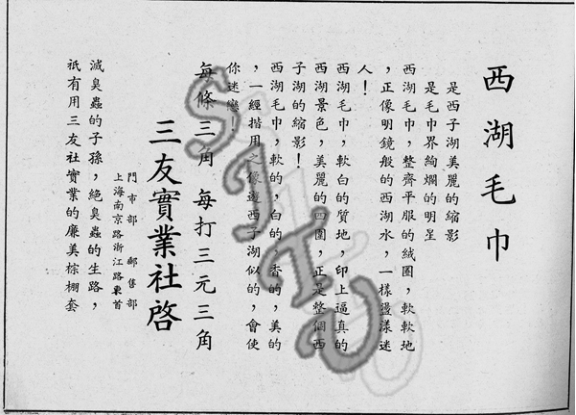 西湖毛巾
是西子湖美麗的縮影
是毛巾界絢爛的明星
西湖毛巾，整齊平服的絨圈，軟軟地
，正像明鏡般的西湖水，一樣盪漾迷
人！
西湖毛巾，軟白的質地，印上逼真的
西湖景色，美麗的四圍，正是整個西
子湖的縮影！
西湖毛巾，軟的，白的，香的，美的
，一經揩用之像遊西子湖似的，會使
你迷戀！
每條三角 每打三元三角
三友實業社啓
門市部 郵售部
上海南京路浙江路東首
滅臭蟲的子孫，絕臭蟲的生路，
祇有用三友社實業的廉美棕棚套
SJTU